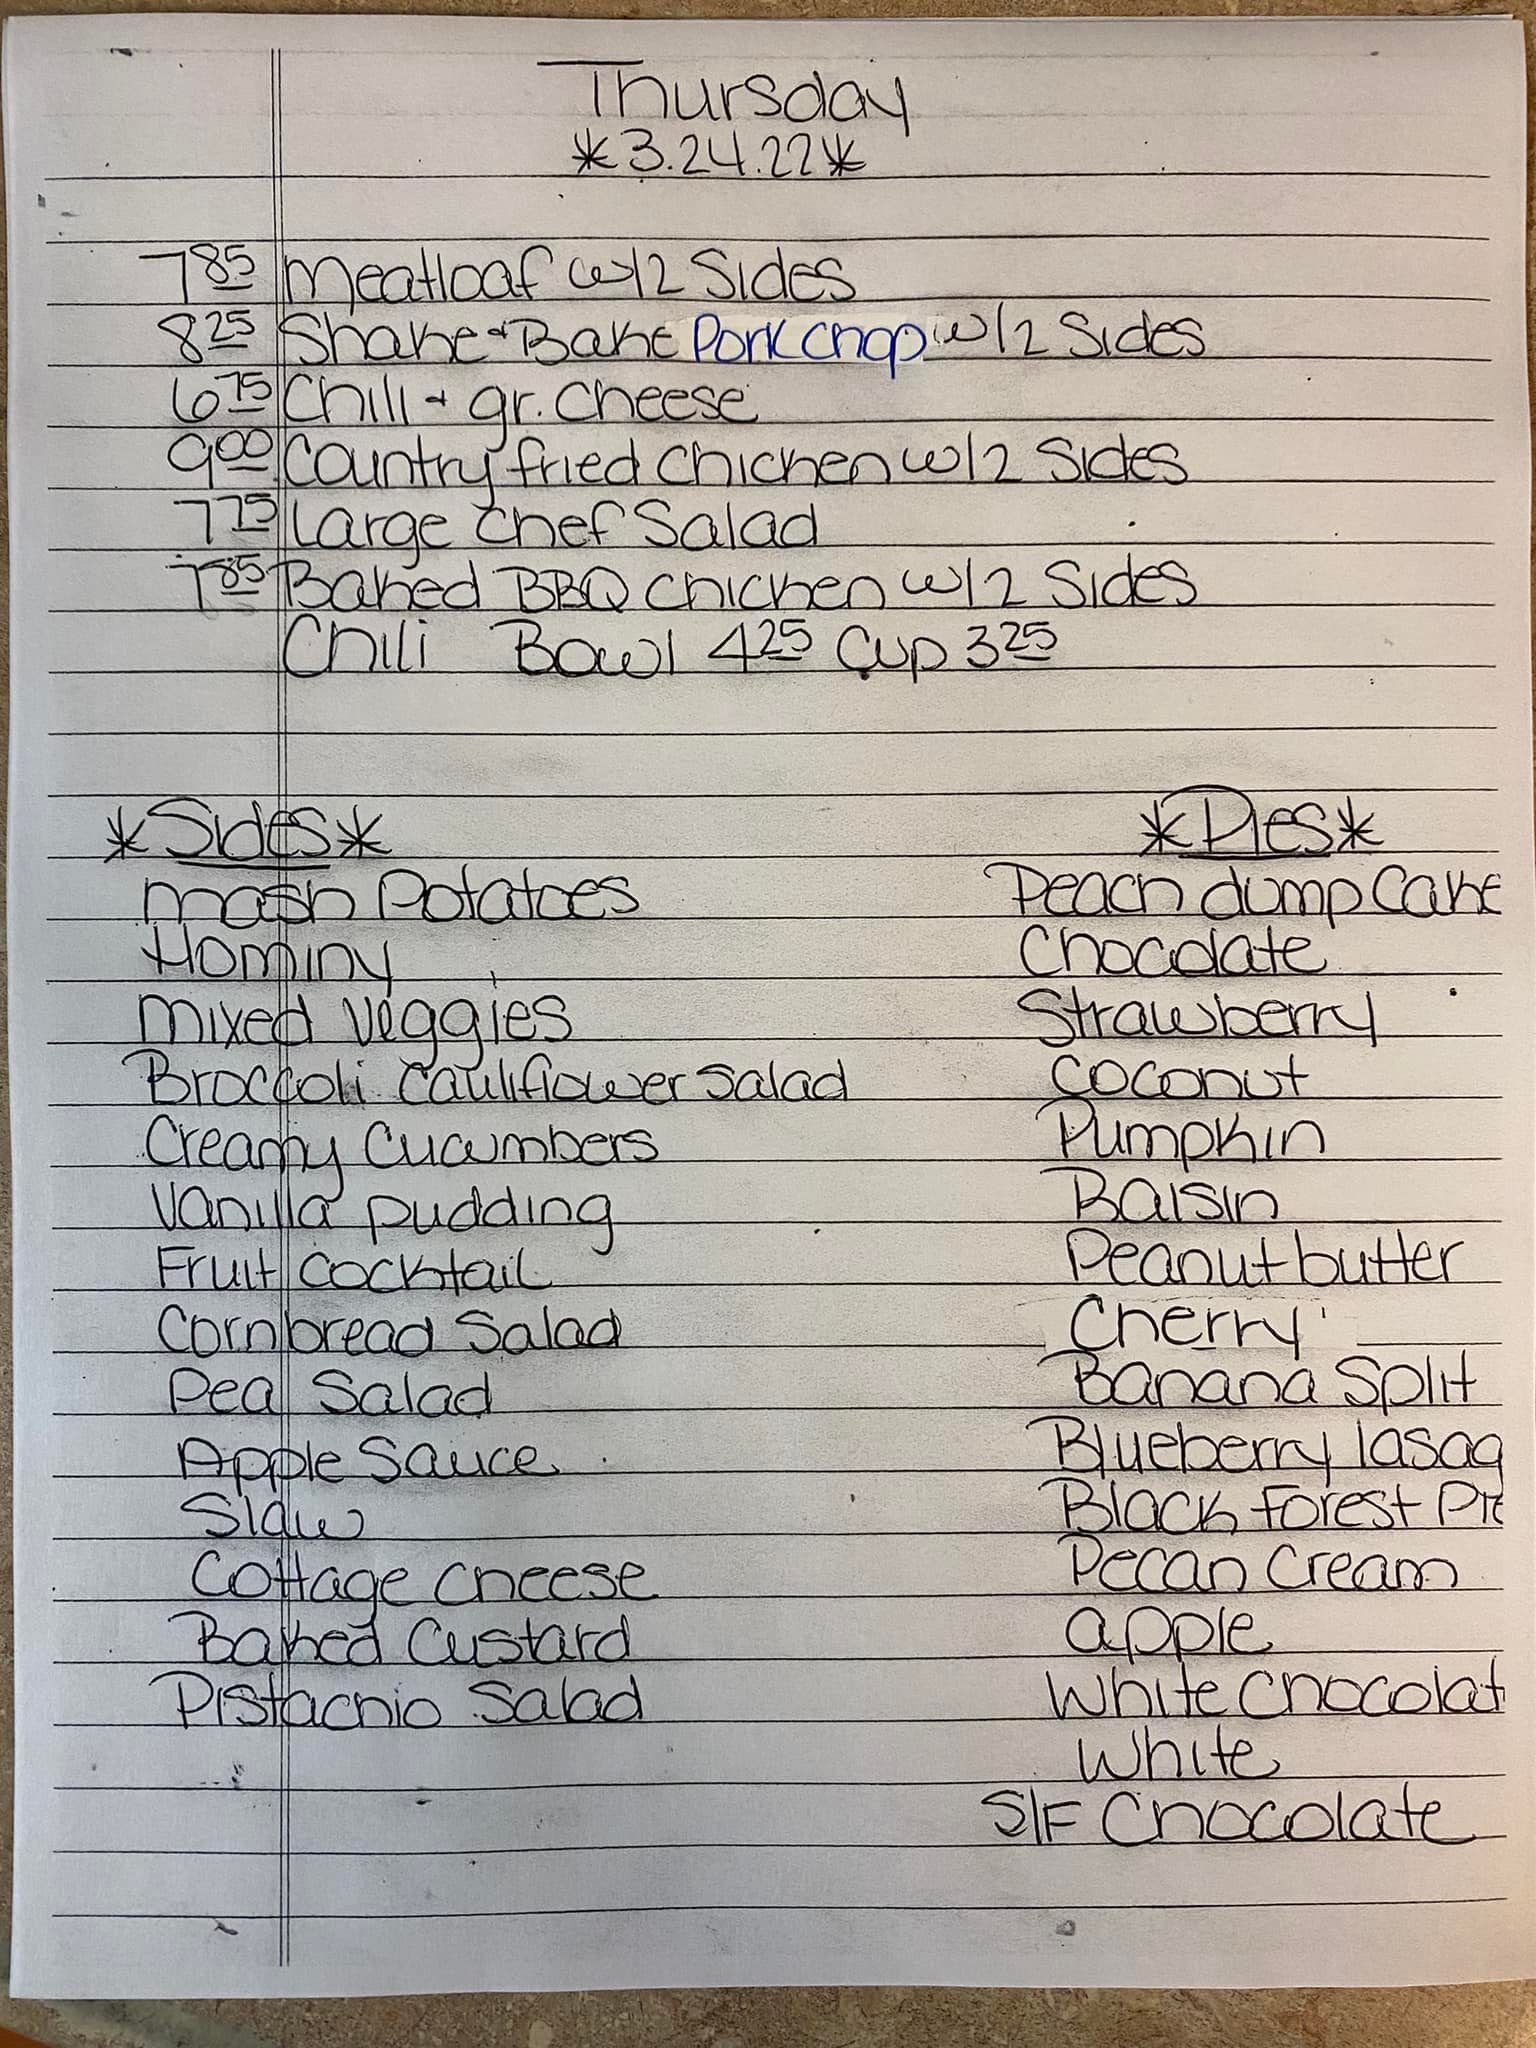 Thursday
*3.24.22*
7 85 Meatloaf w/2 Sides
8 25 Shake + Bake Pork Chop w/2 Sides
6 75 Chili + gr. Cheese
9 00 Country fried Chicken w/2 Sides
7 75 Large Chef Salad
7 85 Baked BBQ Chicken w/2 Sides
Chili Bowl 4 25 Cup 3 25
*Sides*
Mash Potatoes
Hominy
Mixed Veggies
Broccoli Cauliflower Salad
Creamy Cucumbers
Vanilla pudding
Fruit Cocktail
Cornbread Salad
Pea Salad
Apple Sauce
Slaw
Cottage Cheese
Baked Custard
Pistachio Salad
*Pies*
Peach dump Cake
Chocolate
Strawberry
Coconut
Pumpkin
Raisin
Peanut butter
Cherry
Banana Split
Blueberry lasag
Black Forest Pie
Pecan Cream
apple
White Chocolat
White
S/F Chocolate